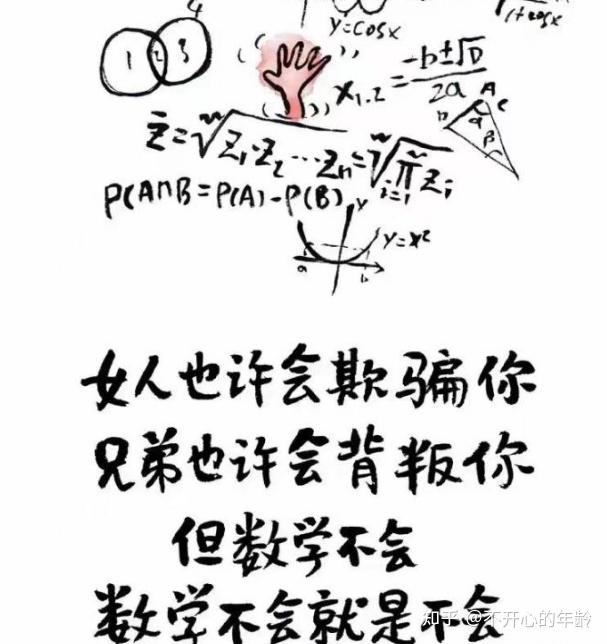 4
1 2 3
y=cosx
1+cosx
x₁.₂=(-b±√D)/2a
A
B
C
α
β
z̄=ⁿ√z₁·z₂···zₙ=ⁿ√∏ⁿᵢ₌₁zᵢ
P(A∩B=P(A)-P(B)
y
y=x²
a
b
女人也许会欺骗你
兄弟也许会背叛你
但数学不会
数学不会就是不会
知乎 @不开心的年龄